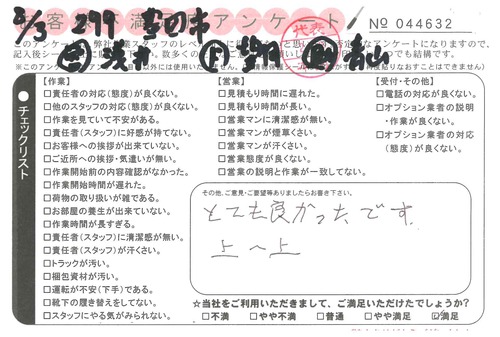 お客様不満足度アンケート
No 044632
2/3 299
代表
青山
【作業】
□責任者の対応(態度)が良くない。
□他のスタッフの対応(態度)が良くない。
□作業を見ていて不安がある。
□責任者(スタッフ)に好感が持てない。
□お客様への挨拶が出来ていない。
□ご近所への挨拶・気遣いが無い。
□作業開始前の内容確認がなかった。
□作業開始時間が遅れた。
□荷物の取り扱いが雑である。
□お部屋の養生が出来ていない。
□作業時間が長すぎる。
□責任者(スタッフ)に清潔感が無い。
□責任者(スタッフ)が汗くさい。
□トラックが汚い。
□梱包資材が汚い。
□運転が不安(下手)である。
□靴下の履き替えをしてない。
□スタッフにやる気がみられない。
【営業】
□見積もり時間に遅れた。
□見積もり時間が長い。
□営業マンに清潔感が無い。
□営業マンが煙草くさい。
□営業マンが汗くさい。
□営業態度が良くない。
□営業の説明と作業が一致してない。
【受付・その他】
□電話の対応が良くない。
□オプション業者の説明
・作業が良くない。
□オプション業者の対応
(態度)が良くない。
チェックリスト
その他、ご意見・ご要望等ありましたらお書き下さい。
とても良かったです。
上〜上
☆当社をご利用いただきまして、ご満足いただけたでしょうか?
□不満 □やや不満 □普通 □やや満足 ☑満足